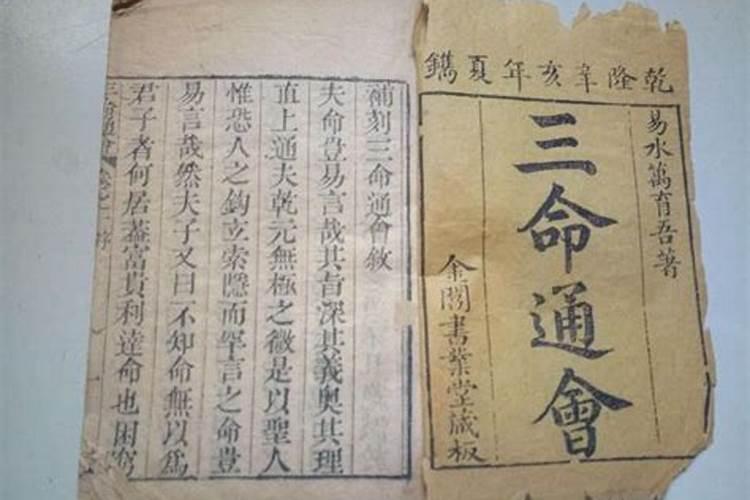 乾隆辛亥年夏鐫
易水萬育吾著
三命通會
金閶書業堂藏板
補刻三命通會敘
夫命豈易言哉其旨深其義奧其理
直上通夫乾元無極之微是以聖人
惟恐人之鉤立索隱而罕言之命豈
易言哉然夫子又曰不知命無以為
君子者何居葢富貴利達命也困窮
三命通會
序
一